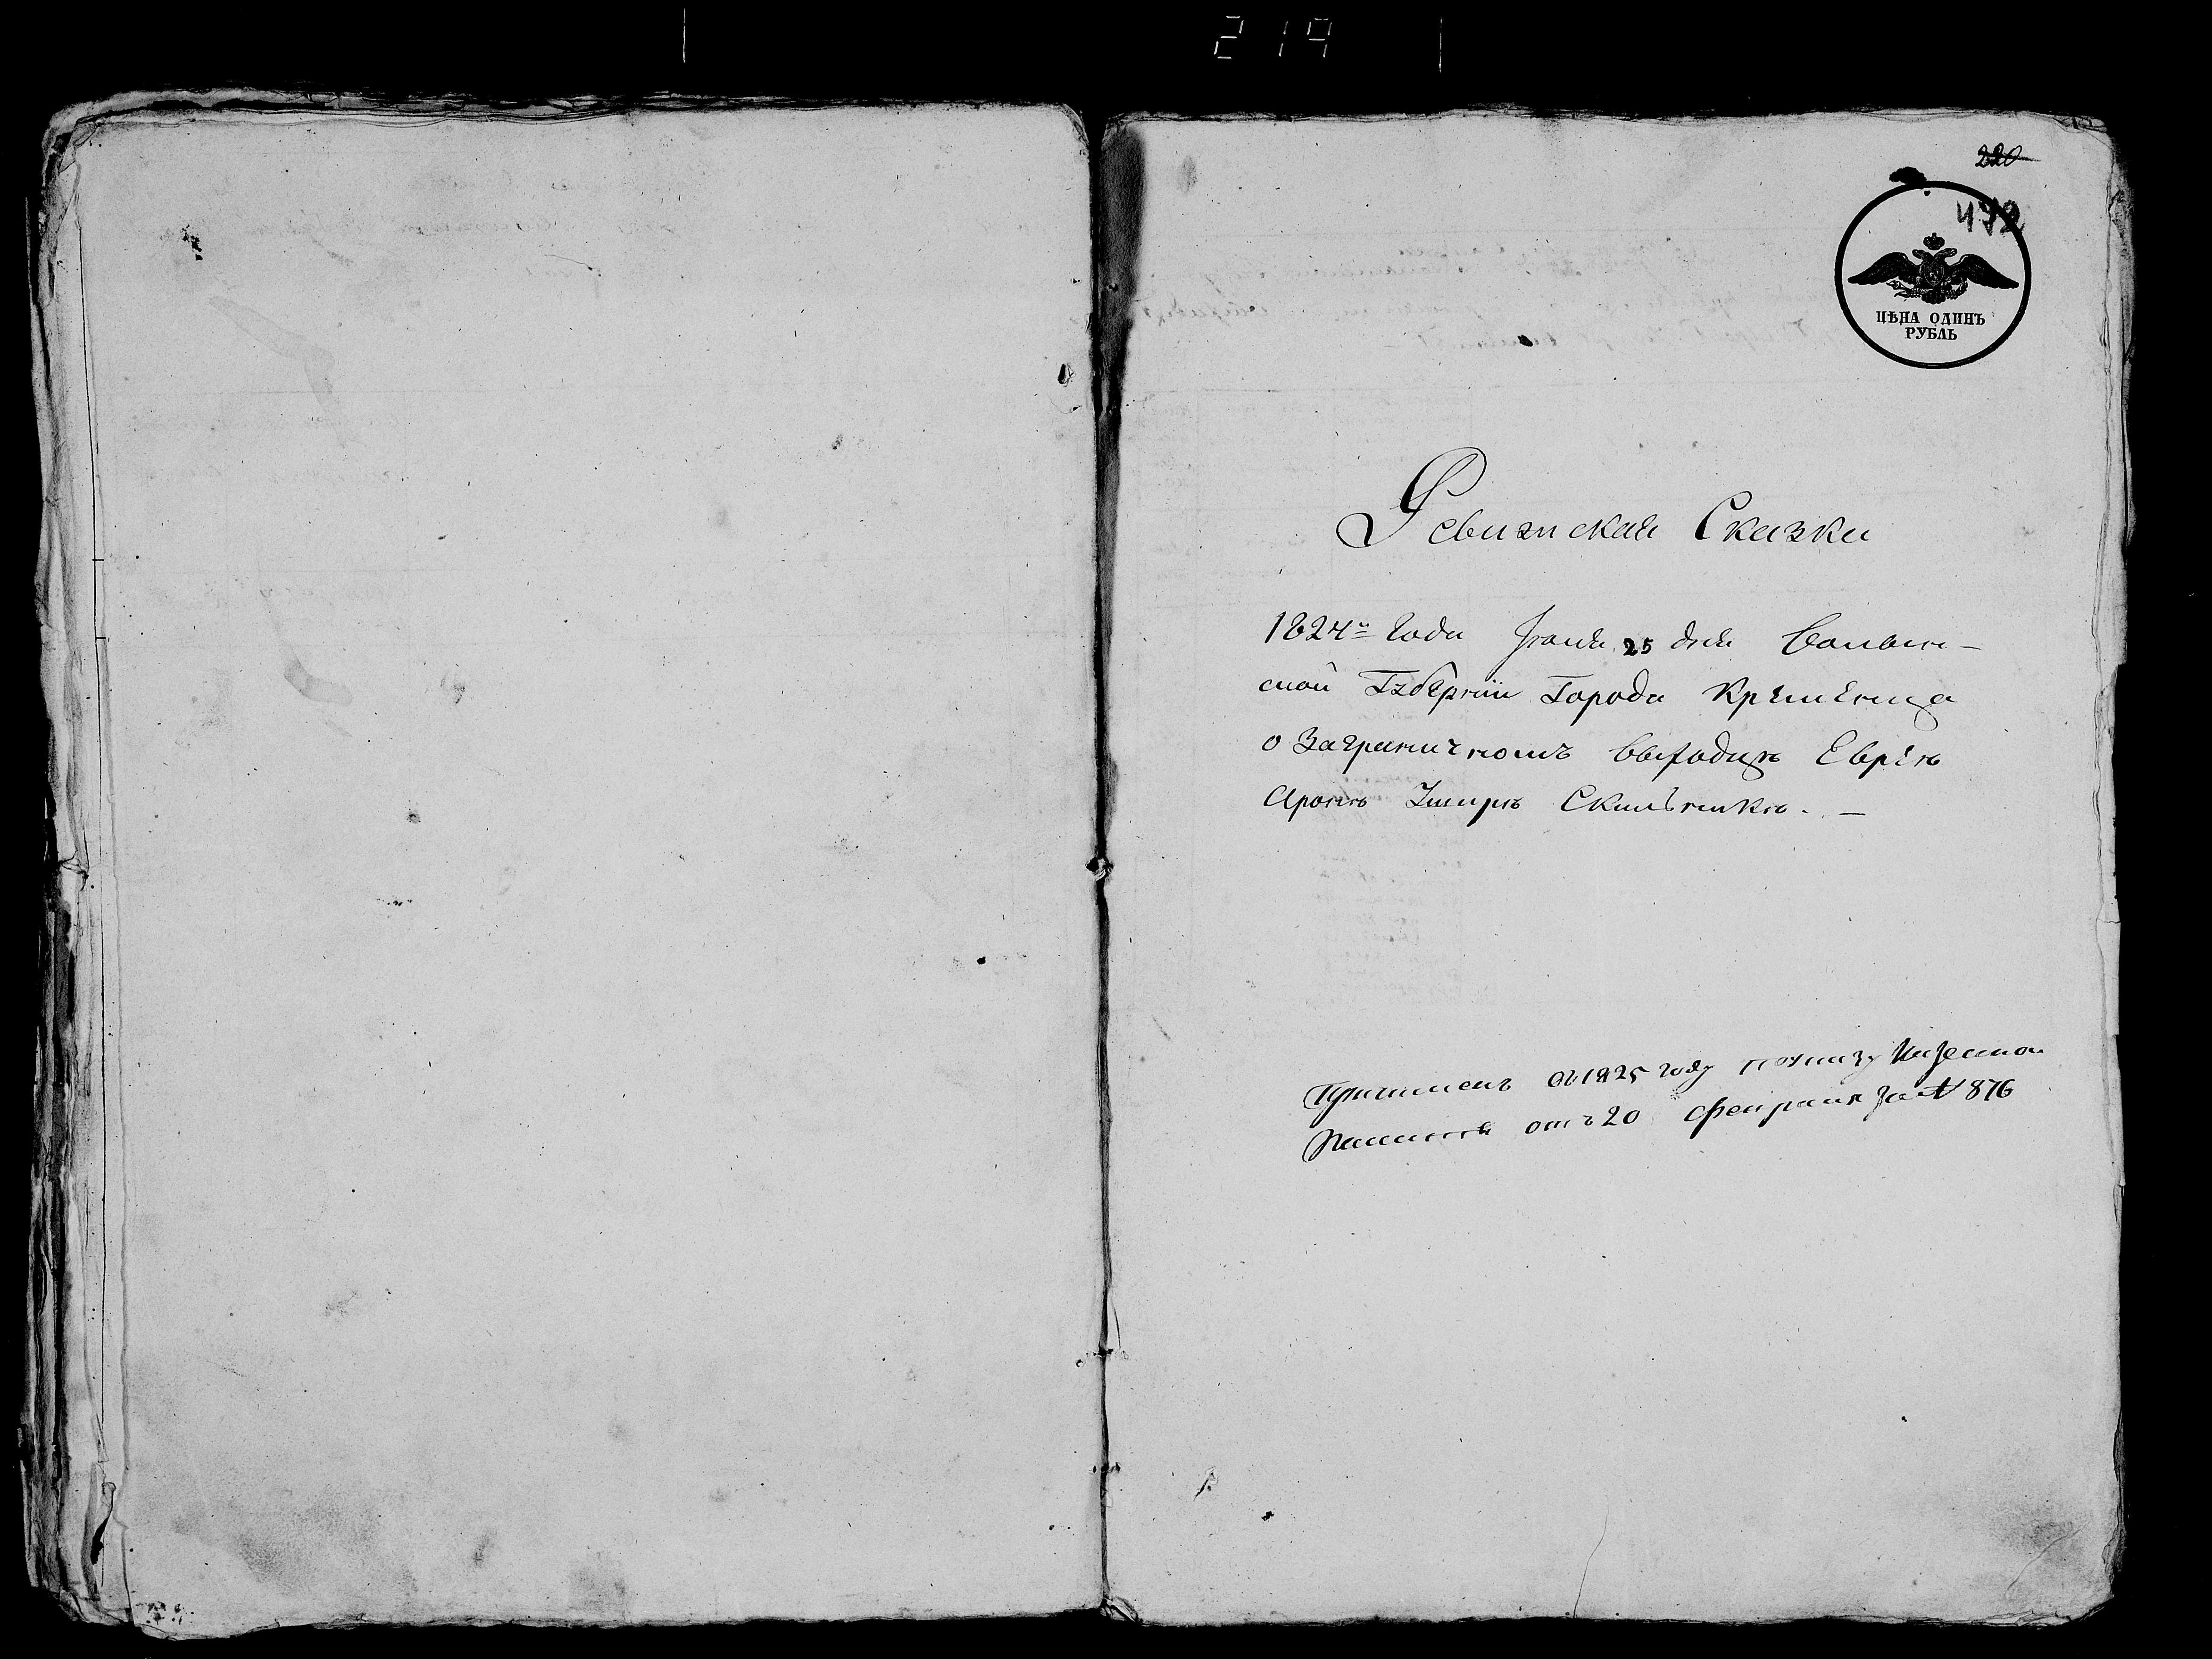 219
220
472
ЦѢНА ОДИНЪ
РУБЛЬ
Ревизская Сказка
1824го Года Іюня 25 дня Волын-
ской Губерніи Города Кременца
о Заграничномъ выходцѣ Евреѣ
Аронѣ Шмирѣ
въ 1825 году по указу Казенной
Палаты отъ 20 февраля за № 876